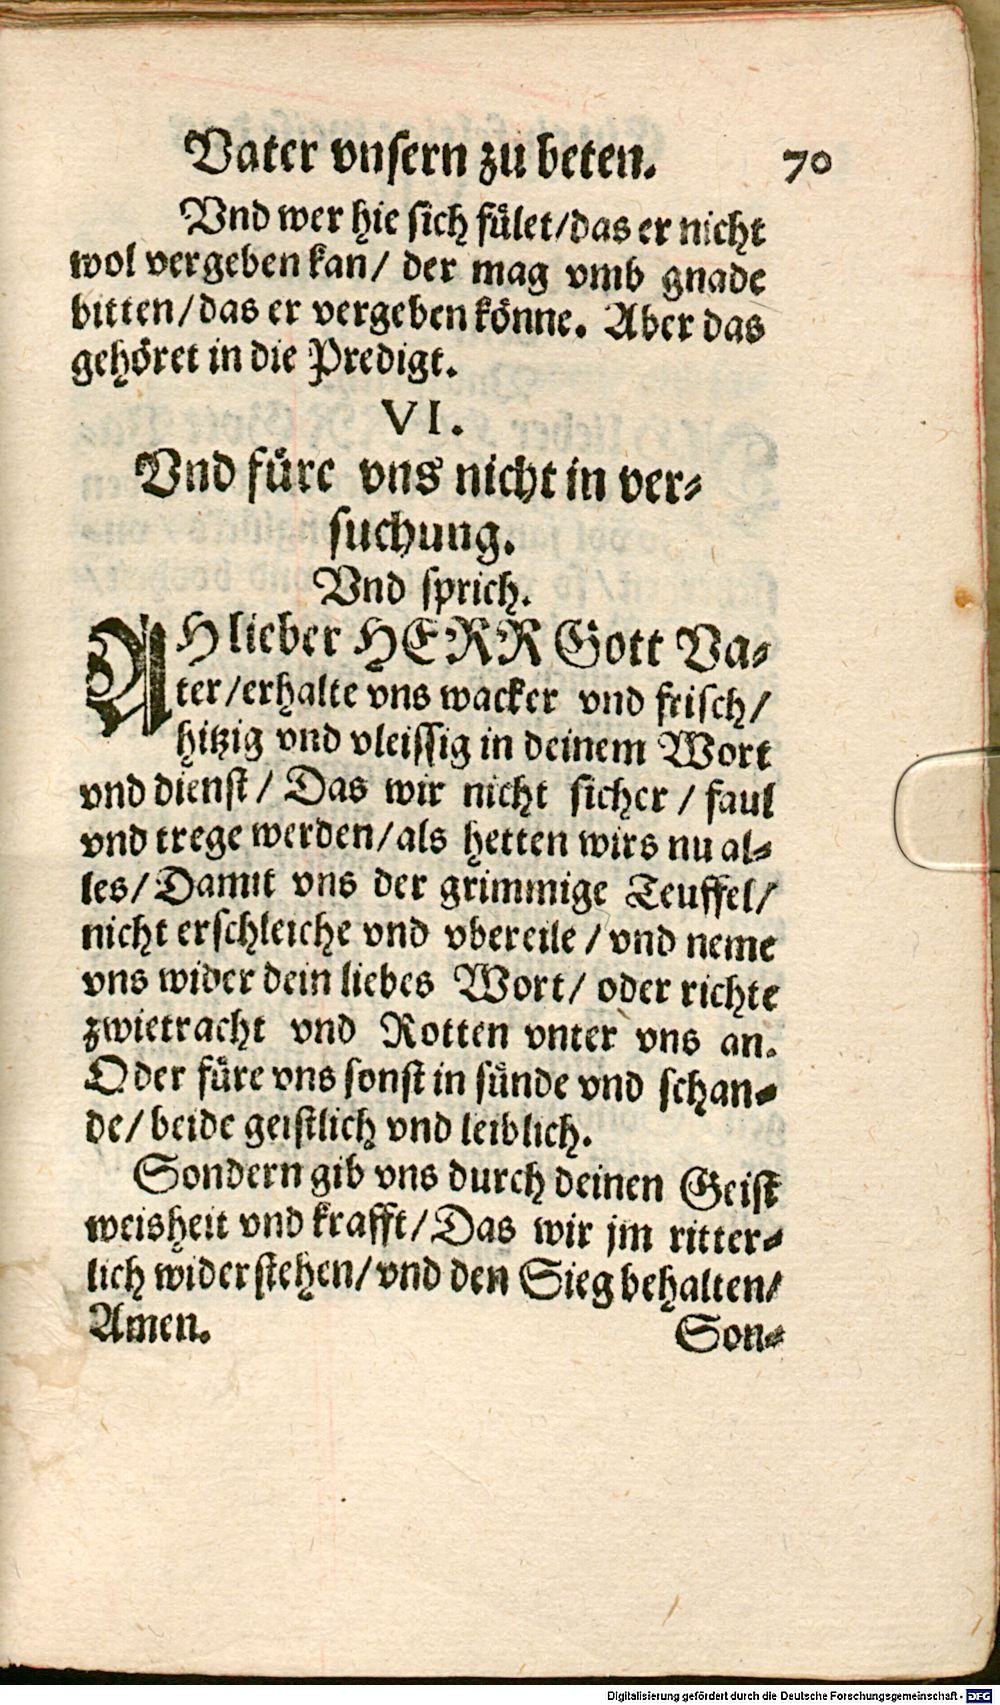 Vater vnsern zu beten. 70
Vnd wer hie sich fület/das er nicht
wol vergeben kan/ der mag vmb gnade
bitten/das er vergeben könne. Aber das
gehöret in die Predigt.
VI.
Vnd füre vns nicht in ver-
suchung.
Vnd sprich.
AH lieber HERR Gott Va-
ter/erhalte vns wacker vnd frisch/
hitzig vnd vleissig in deinem Wort
vnd dienst/ Das wir nicht sicher/ faul
vnd trege werden/als hetten wirs nu al-
les/ Damit vns der grimmige Teuffel/
nicht erschleiche vnd vbereile/ vnd neme
vns wider dein liebes Wort/ oder richte
zwietracht vnd Rotten vnter vns an.
Oder füre vns sonst in sünde vnd schan-
de/ beide geistlich vnd leiblich.
Sondern gib vns durch deinen Geist
weisheit vnd krafft/ Das wir jm ritter-
lich widerstehen/ vnd den Sieg behalten/
Amen.
Son-
Digitalisierung gefördert durch die Deutsche Forschungsgemeinschaft - DFG